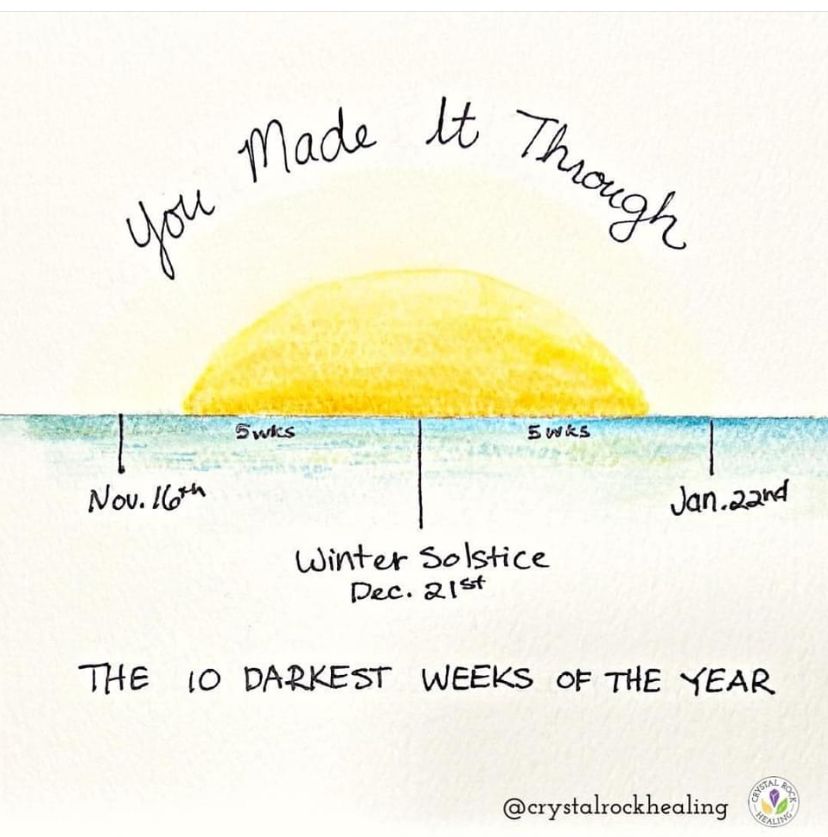 You Made It Through
5wks 5wks
Nov. 16th Jan. 22nd
Winter Solstice
Dec. 21st
THE 10 DARKEST WEEKS OF THE YEAR
@crystalrockhealing
CRYSTAL ROCK
HEALING